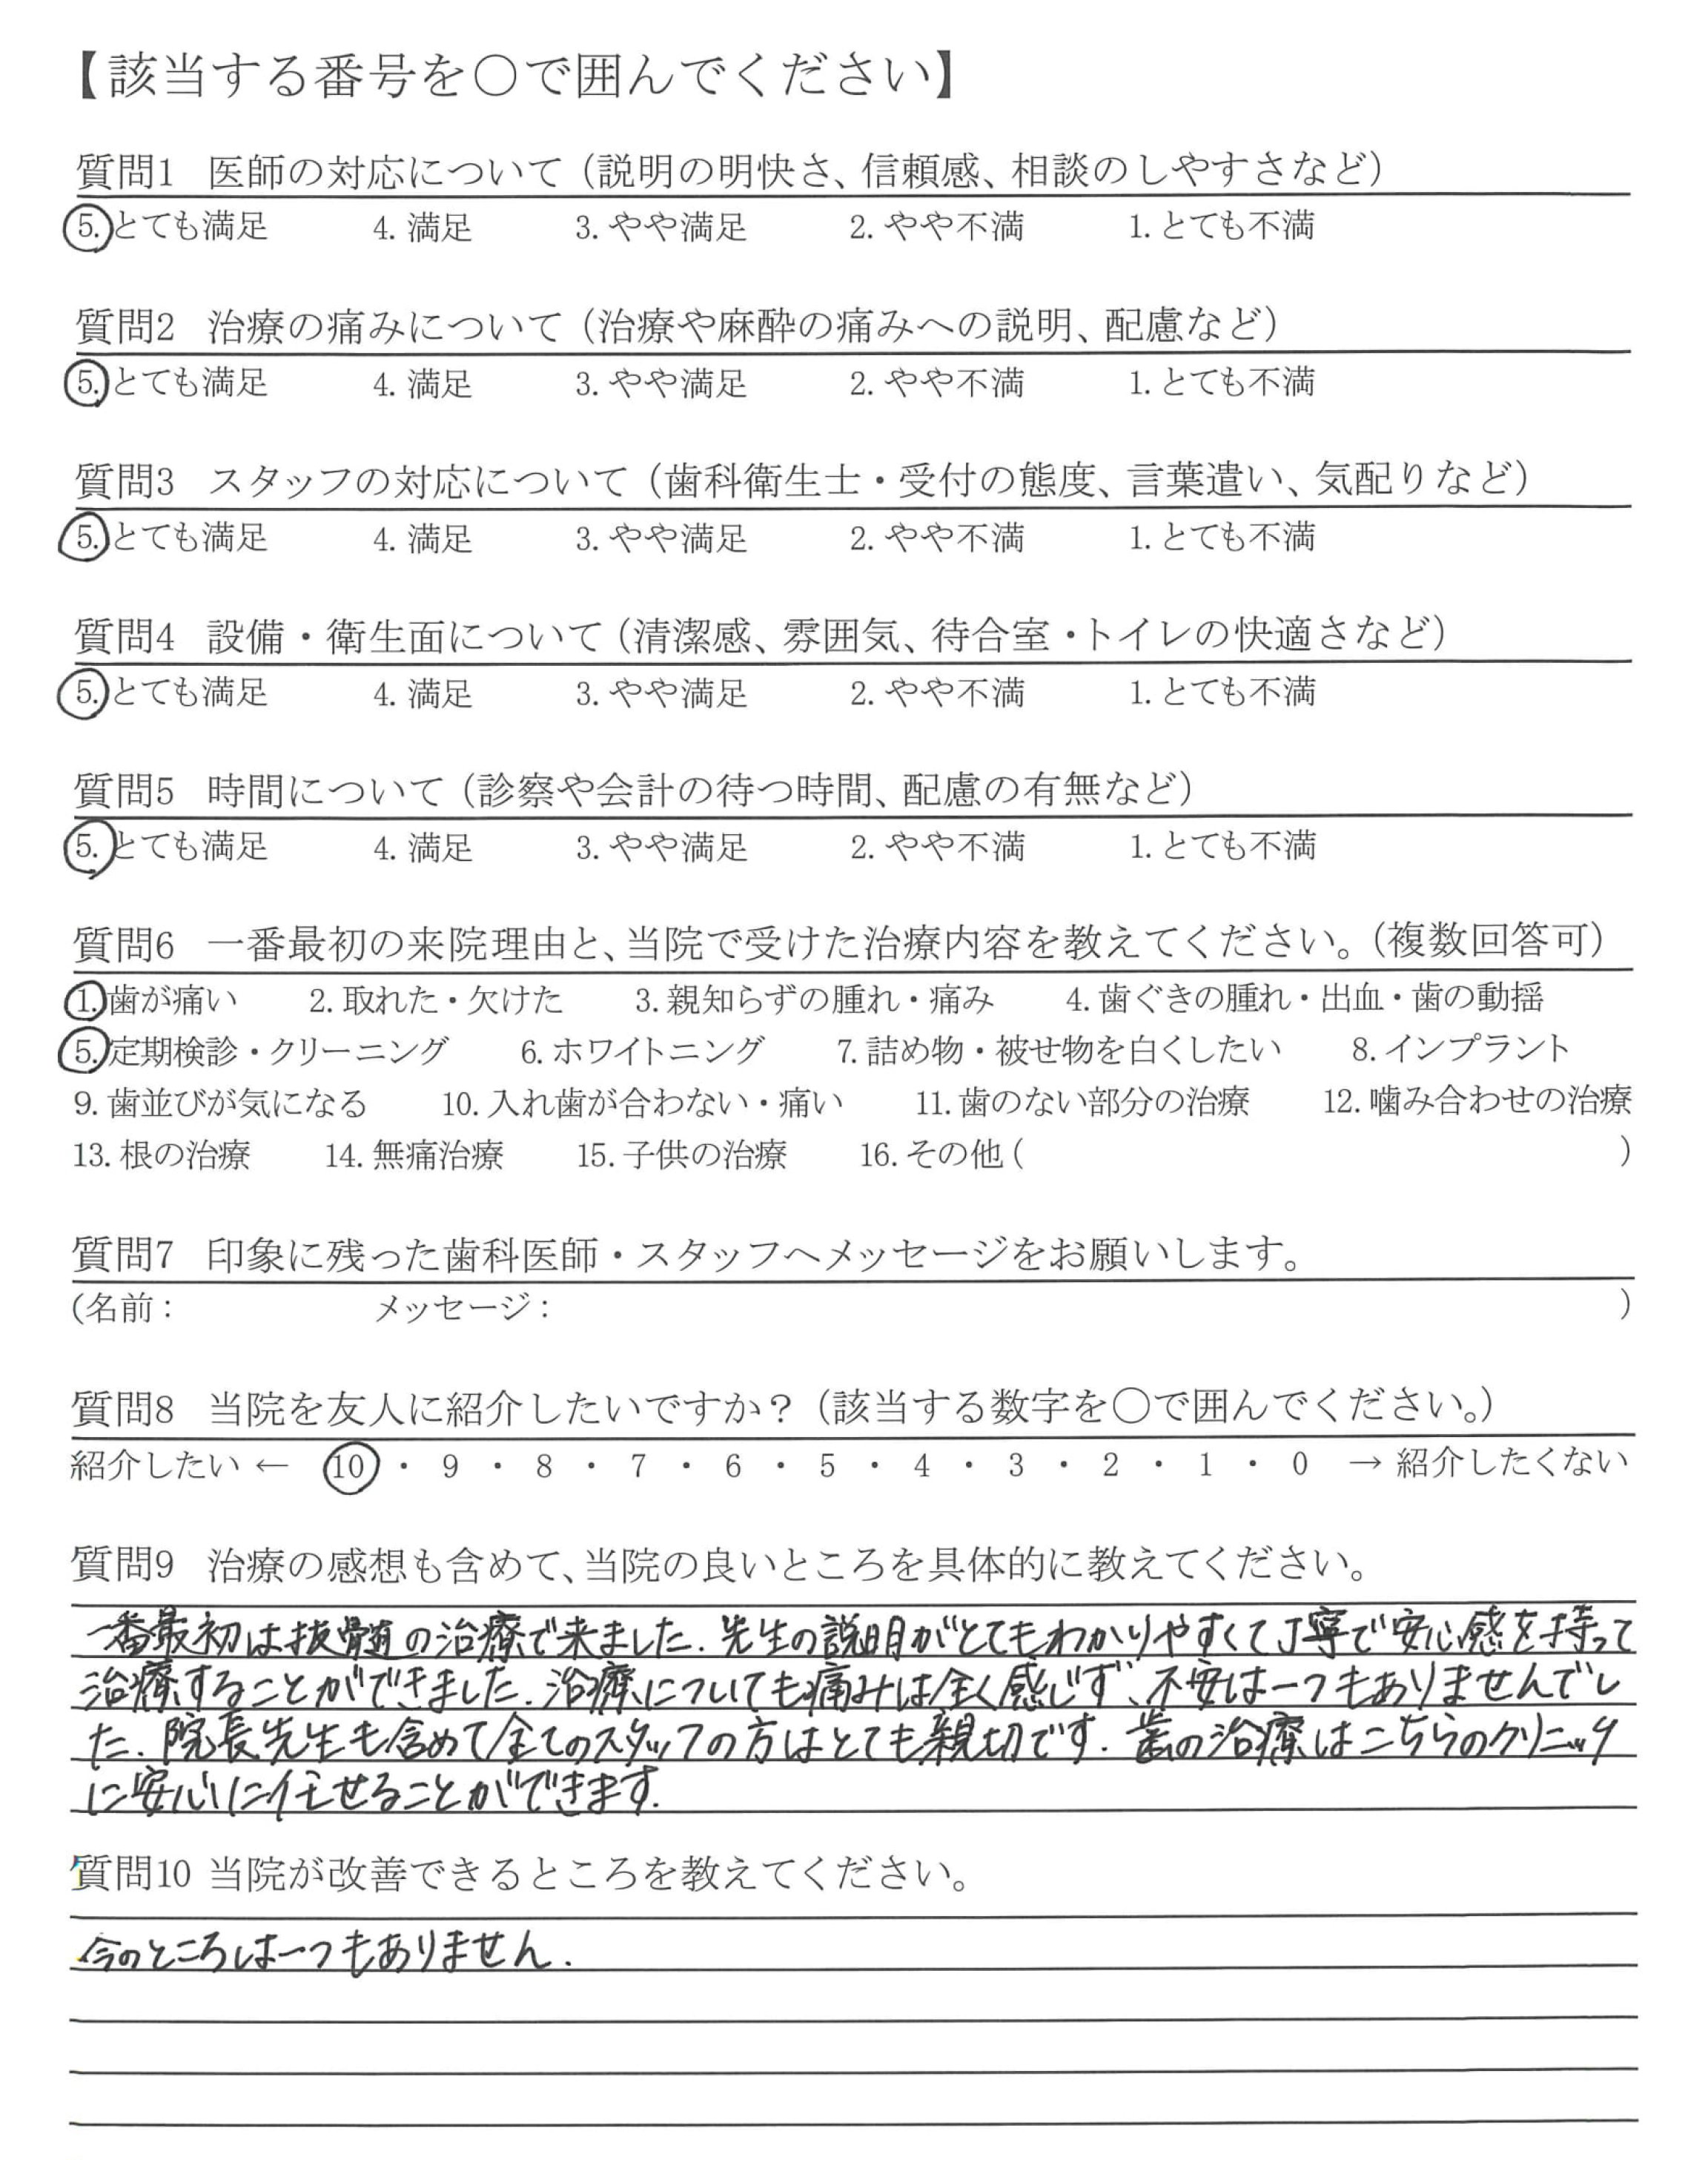 【該当する番号を〇で囲んでください】
質問1 医師の対応について（説明の明快さ、信頼感、相談のしやすさなど）
5. とても満足 4. 満足 3. やや満足 2. やや不満 1. とても不満
質問2 治療の痛みについて（治療や麻酔の痛みへの説明、配慮など）
5. とても満足 4. 満足 3. やや満足 2. やや不満 1. とても不満
質問3 スタッフの対応について（歯科衛生士・受付の態度、言葉遣い、気配りなど）
5. とても満足 4. 満足 3. やや満足 2. やや不満 1. とても不満
質問4 設備・衛生面について（清潔感、雰囲気、待合室・トイレの快適さなど）
5. とても満足 4. 満足 3. やや満足 2. やや不満 1. とても不満
質問5 時間について（診察や会計の待つ時間、配慮の有無など）
5. とても満足 4. 満足 3. やや満足 2. やや不満 1. とても不満
質問6 一番最初の来院理由と、当院で受けた治療内容を教えてください。（複数回答可）
1. 歯が痛い 2. 取れた・欠けた 3. 親知らずの腫れ・痛み 4. 歯ぐきの腫れ・出血・歯の動揺
5. 定期検診・クリーニング 6. ホワイトニング 7. 詰め物・被せ物を白くしたい 8. インプラント
9. 歯並びが気になる 10. 入れ歯が合わない・痛い 11. 歯のない部分の治療 12. 噛み合わせの治療
13. 根の治療 14. 無痛治療 15. 子供の治療 16. その他 ( )
質問7 印象に残った歯科医師・スタッフへメッセージをお願いします。
(名前： メッセージ： )
質問8 当院を友人に紹介したいですか？（該当する数字を〇で囲んでください。）
紹介したい ← 10 ・ 9 ・ 8 ・ 7 ・ 6 ・ 5 ・ 4 ・ 3 ・ 2 ・ 1 ・ 0 → 紹介したくない
質問9 治療の感想も含めて、当院の良いところを具体的に教えてください。
一番最初は抜髄の治療で来ました. 先生の説明がとてもわかりやすくて丁寧で安心感を持って
治療することができました. 治療についても痛みは全く感じず、不安は一つもありませんでし
た. 院長先生も含めて全てのスタッフの方はとても親切です. 歯の治療はこちらのクリニック
に安心に任せることができます.
質問10 当院が改善できるところを教えてください。
今のところは一つもありません.